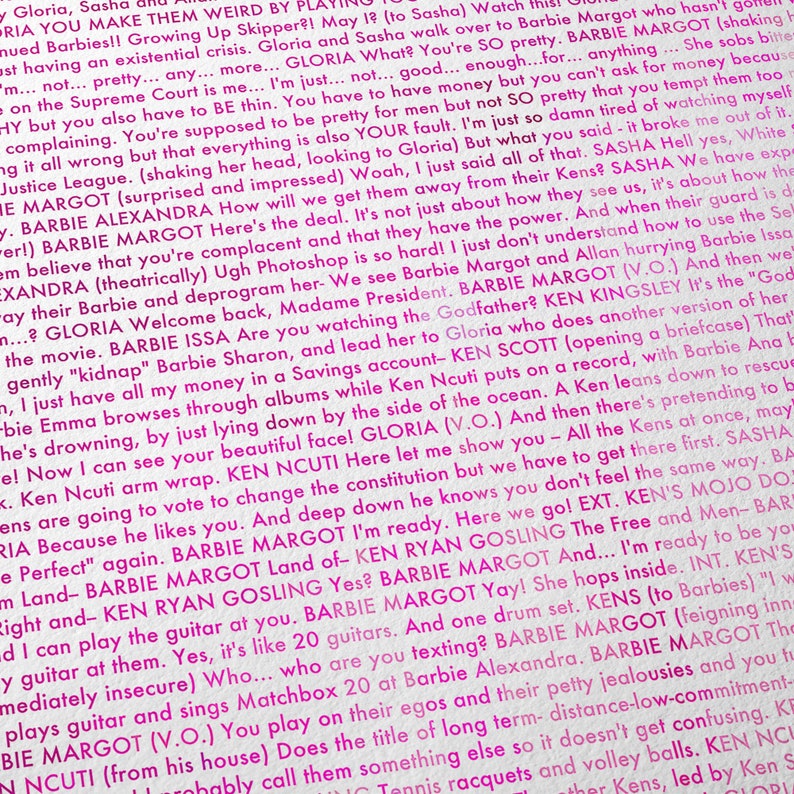 Gloria, Sasha and
YOU MAKE THEM WEIRD BY PLAYING
Barbies!! Growing Up Skipper?! May I? (to Sasha) Watch this!
just having an existential crisis. Gloria and Sasha walk over to Barbie Margot who hasn't gotten
I'm... not... pretty... any... more... GLORIA What? You're SO pretty. BARBIE MARGOT (shaking
on the Supreme Court is me... I'm just... not... good... enough...for... anything ... She sobs
but you also have to BE thin. You have to have money but you can't ask for money
complaining. You're supposed to be pretty for men but not SO pretty that you tempt them too
it all wrong but that everything is also YOUR fault. I'm just so damn tired of watching myself
Justice League. (shaking her head, looking to Gloria) But what you said - it broke me out of it.
MARGOT (surprised and impressed) Woah, I just said all of that. SASHA Hell yes, White
BARBIE ALEXANDRA How will we get them away from their Kens? SASHA We have
BARBIE MARGOT Here's the deal. It's not just about how they see us, it's about how
believe that you're complacent and that they have the power. And when their guard is
(theatrically) Ugh Photoshop is so hard! I just don't understand how to use the
their Barbie and deprogram her- We see Barbie Margot and Allan hurrying Barbie Issa
GLORIA Welcome back, Madame President. BARBIE MARGOT (V.O.) And then
the movie. BARBIE ISSA Are you watching the Godfather? KEN KINGSLEY It's the "God
gently "kidnap" Barbie Sharon, and lead her to Gloria who does another version of her
I just have all my money in a Savings account– KEN SCOTT (opening a briefcase) That'
Barbie Emma browses through albums while Ken Ncuti puts on a record, with Barbie Ana
she's drowning, by just lying down by the side of the ocean. A Ken leans down to rescue
Now I can see your beautiful face! GLORIA (V.O.) And then there's pretending to
Ken Ncuti arm wrap. KEN NCUTI Here let me show you – All the Kens at once,
are going to vote to change the constitution but we have to get there first. SASHA
Because he likes you. And deep down he knows you don't feel the same way.
Perfect" again. BARBIE MARGOT I'm ready. Here we go! EXT. KEN'S MOJO
Land– BARBIE MARGOT Land of– KEN RYAN GOSLING The Free and Men–
Right and– KEN RYAN GOSLING Yes? BARBIE MARGOT And... I'm ready to be
I can play the guitar at you. BARBIE MARGOT Yay! She hops inside. INT. KEN'S
guitar at them. Yes, it's like 20 guitars. And one drum set. KENS (to Barbies) "I
insecure) Who... who are you texting? BARBIE MARGOT (feigning
plays guitar and sings Matchbox 20 at Barbie Alexandra. BARBIE MARGOT
MARGOT (V.O.) You play on their egos and their petty jealousies and you
NCUTI (from his house) Does the title of long term- distance-low-commitment-
probably call them something else so it doesn't get confusing.
Tennis racquets and volley balls. KEN
Kens, led by Ken